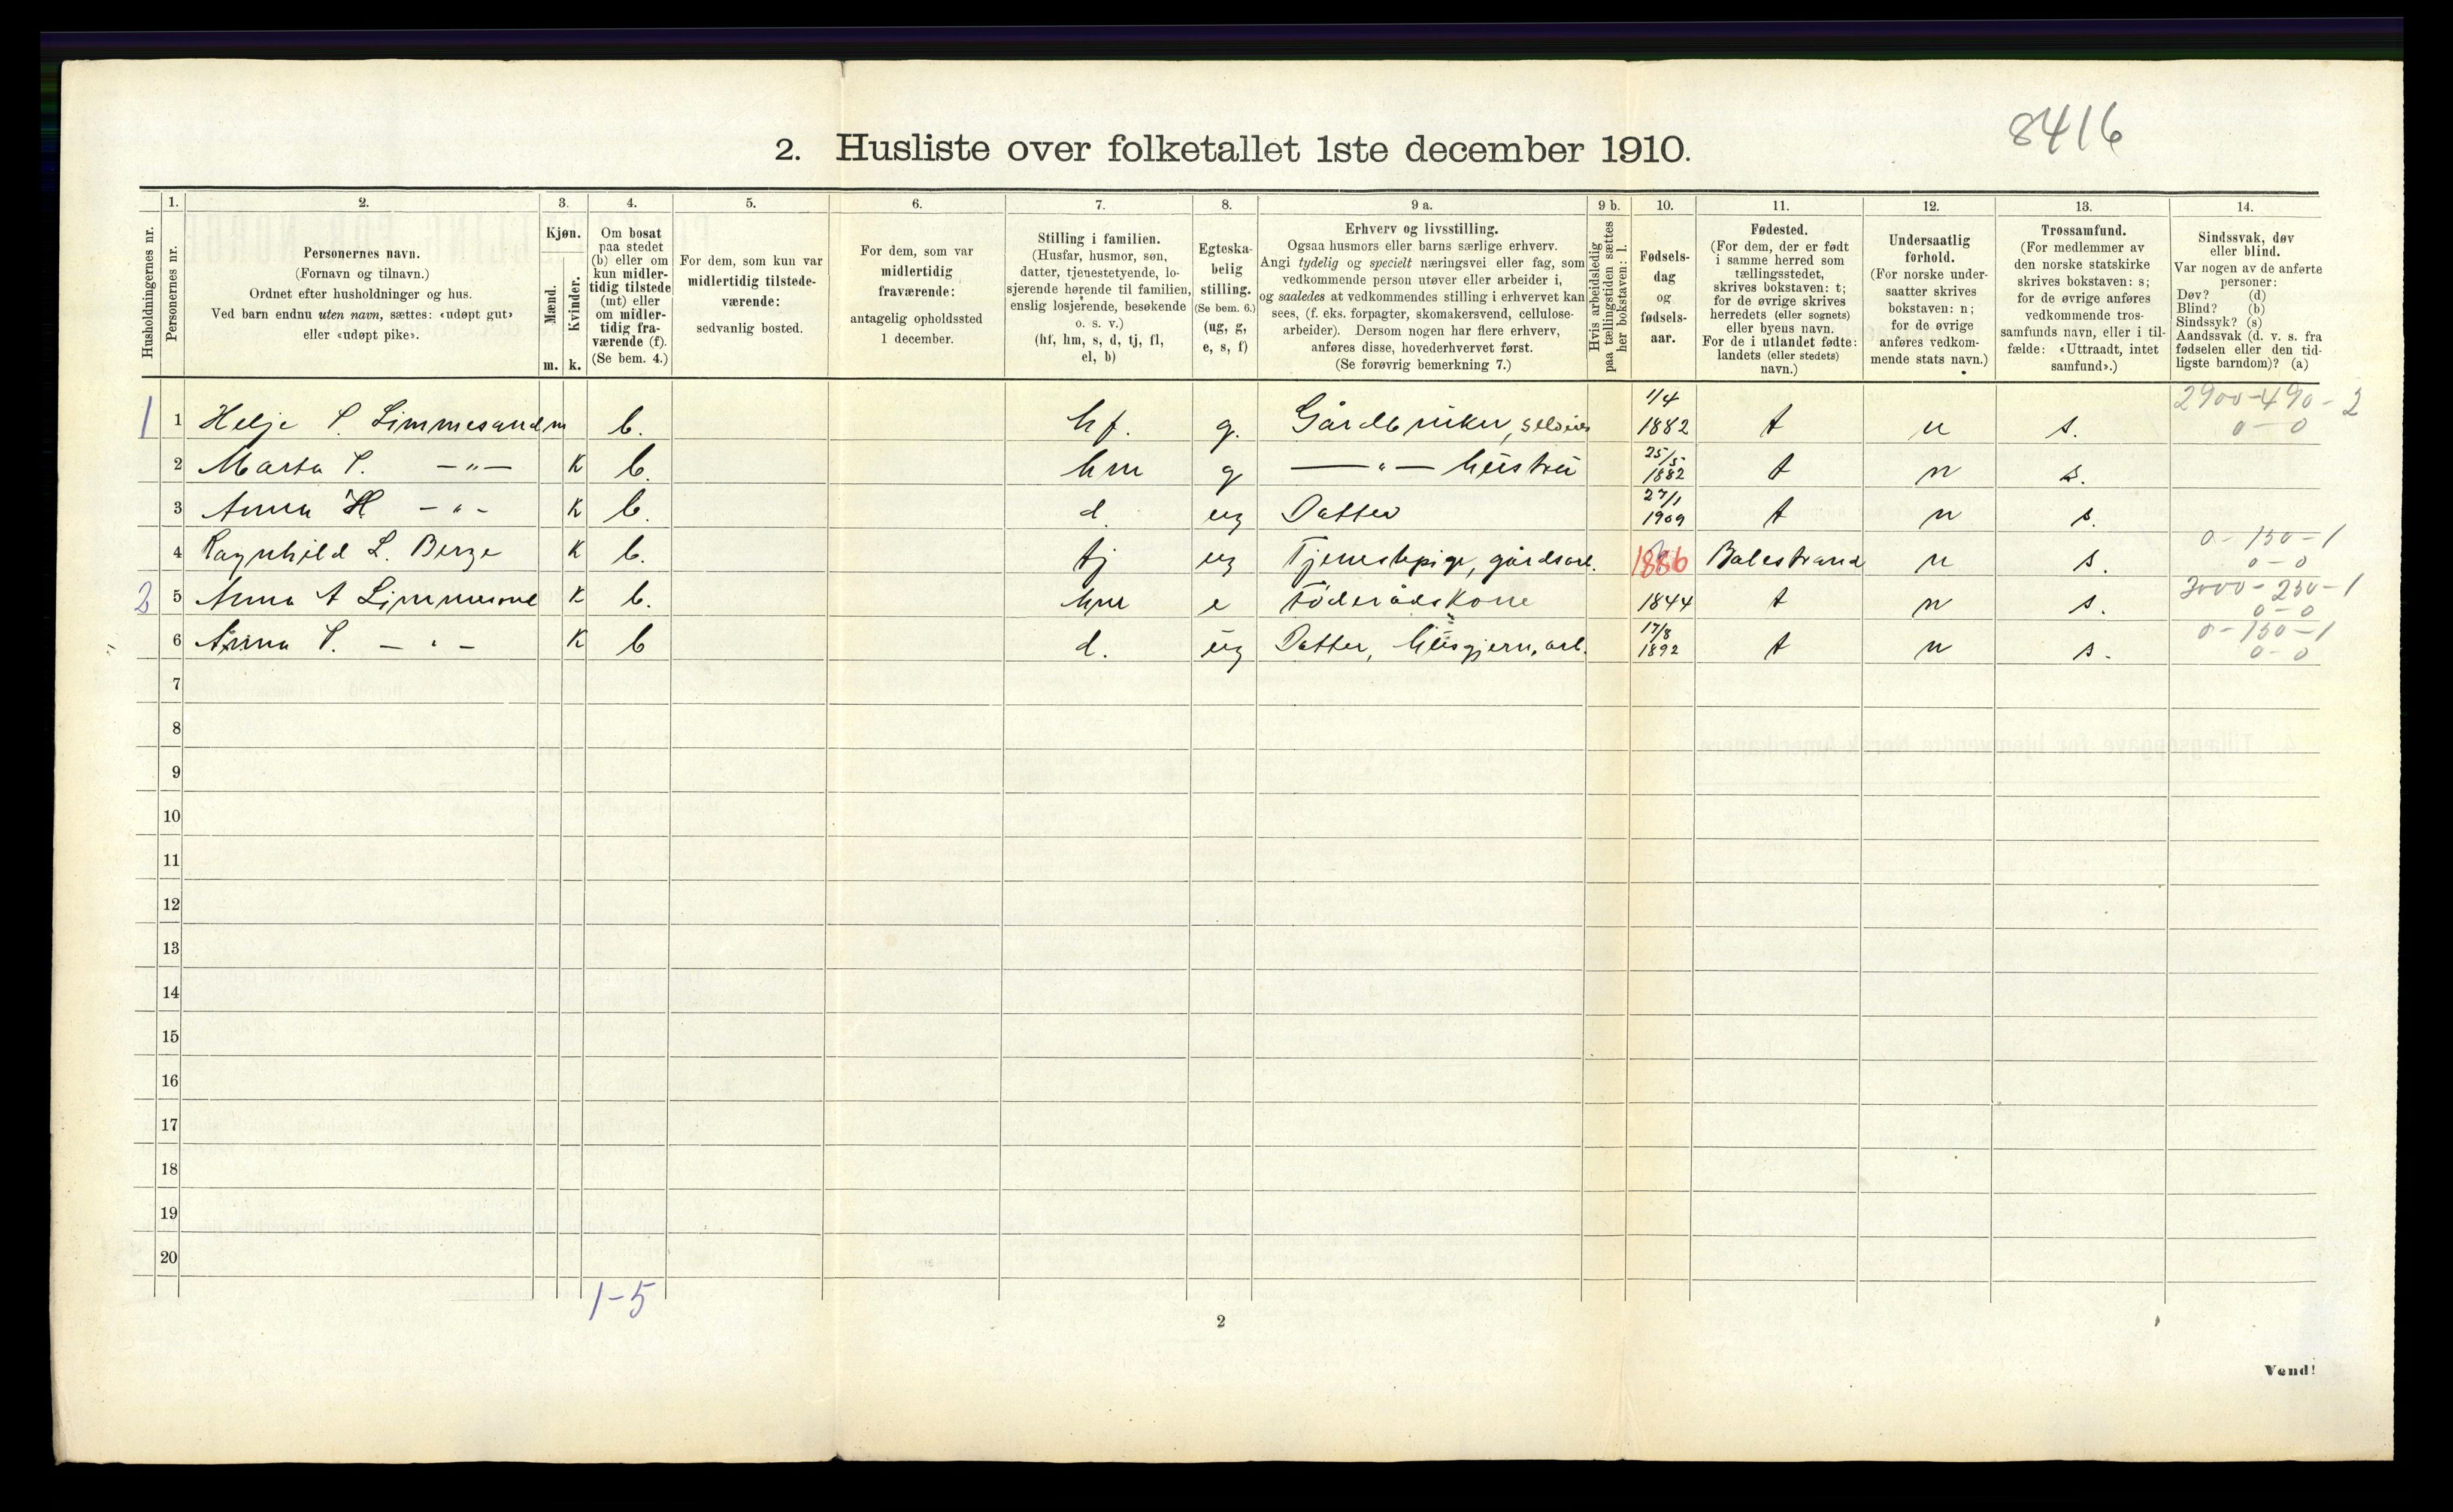 8416
2. Husliste over folketallet 1ste december 1910.
Husholdningernes nr.
1.
Personernes nr.
2.
Personernes navn.
(Fornavn og tilnavn.)
Ordnet efter husholdninger og hus.
Ved barn endnu uten navn, sættes: «udøpt gut»
eller «udøpt pike».
3.
Kjøn.
Mænd.
Kvinder.
m. k.
4.
Om bosat
paa stedet
(b) eller om
kun midler-
tidig tilstede
(mt) eller
om midler-
tidig fra-
værende (f).
(Se bem. 4.)
5.
For dem, som kun var
midlertidig tilstede-
værende:
sedvanlig bosted.
6.
For dem, som var
midlertidig
fraværende:
antagelig opholdssted
1 december.
7.
Stilling i familien.
(Husfar, husmor, søn,
datter, tjenestetyende, lo-
sjerende hørende til familien,
enslig losjerende, besøkende
o. s. v.)
(hf, hm, s, d, tj, fl,
el, b)
8.
Egteska-
belig
stilling.
(Se bem. 6.)
(ug, g,
e, s, f)
9 a.
Erhverv og livsstilling.
Ogsaa husmors eller barns særlige erhverv.
Angi tydelig og specielt næringsvei eller fag, som
vedkommende person utøver eller arbeider i,
og saaledes at vedkommendes stilling i erhvervet kan
sees, (f. eks. forpagter, skomakersvend, cellulose-
arbeider). Dersom nogen har flere erhverv,
anføres disse, hovederhvervet først.
(Se forøvrig bemerkning 7.)
9 b.
Hvis arbeidsledig
paa tællingstiden sættes
her bokstaven: l.
10.
Fødsels-
dag
og
fødsels-
aar.
11.
Fødested.
(For dem, der er født
i samme herred som
tællingsstedet,
skrives bokstaven: t;
for de øvrige skrives
herredets (eller sognets)
eller byens navn.
For de i utlandet fødte:
landets (eller stedets)
navn.)
12.
Undersaatlig
forhold.
(For norske under-
saatter skrives
bokstaven: n;
for de øvrige
anføres vedkom-
mende stats navn.)
13.
Trossamfund.
(For medlemmer av
den norske statskirke
skrives bokstaven: s;
for de øvrige anføres
vedkommende tros-
samfunds navn, eller i til-
fælde: «Uttraadt, intet
samfund».)
14.
Sindssvak, døv
eller blind.
Var nogen av de anførte
personer:
Døv? (d)
Blind? (b)
Sindssyk? (s)
Aandssvak (d. v. s. fra
fødselen eller den tid-
ligste barndom)? (a)
1 1 Helje P. Limmesand m b. hf. g. Gårdbruker, selveier 1/4 1882 t n s. 2900-490-2 0-0
2 Marta P. —"— K b. hm g —"— hustru 25/5 1882 t n s.
3 Anna H. -"- K b. d. ug Datter 27/1 1909 t n s.
4 Ragnhild L. Berge K b. tj ug Tjenestepige, gårdsarb. 1886 Balestrand n s. 0-150-1 0-0
2 5 Anna A Limmesand K b. hm e Føderådskone 1844 t n s. 3000-230-1 0-0
6 Anna P. -"- K b d. ug Datter, husgjern, arb. 17/8 1892 t n s. 0-150-1 0-0
7
8
9
10
11
12
13
14
15
16
17
18
19
20
1-5
2
Vend!